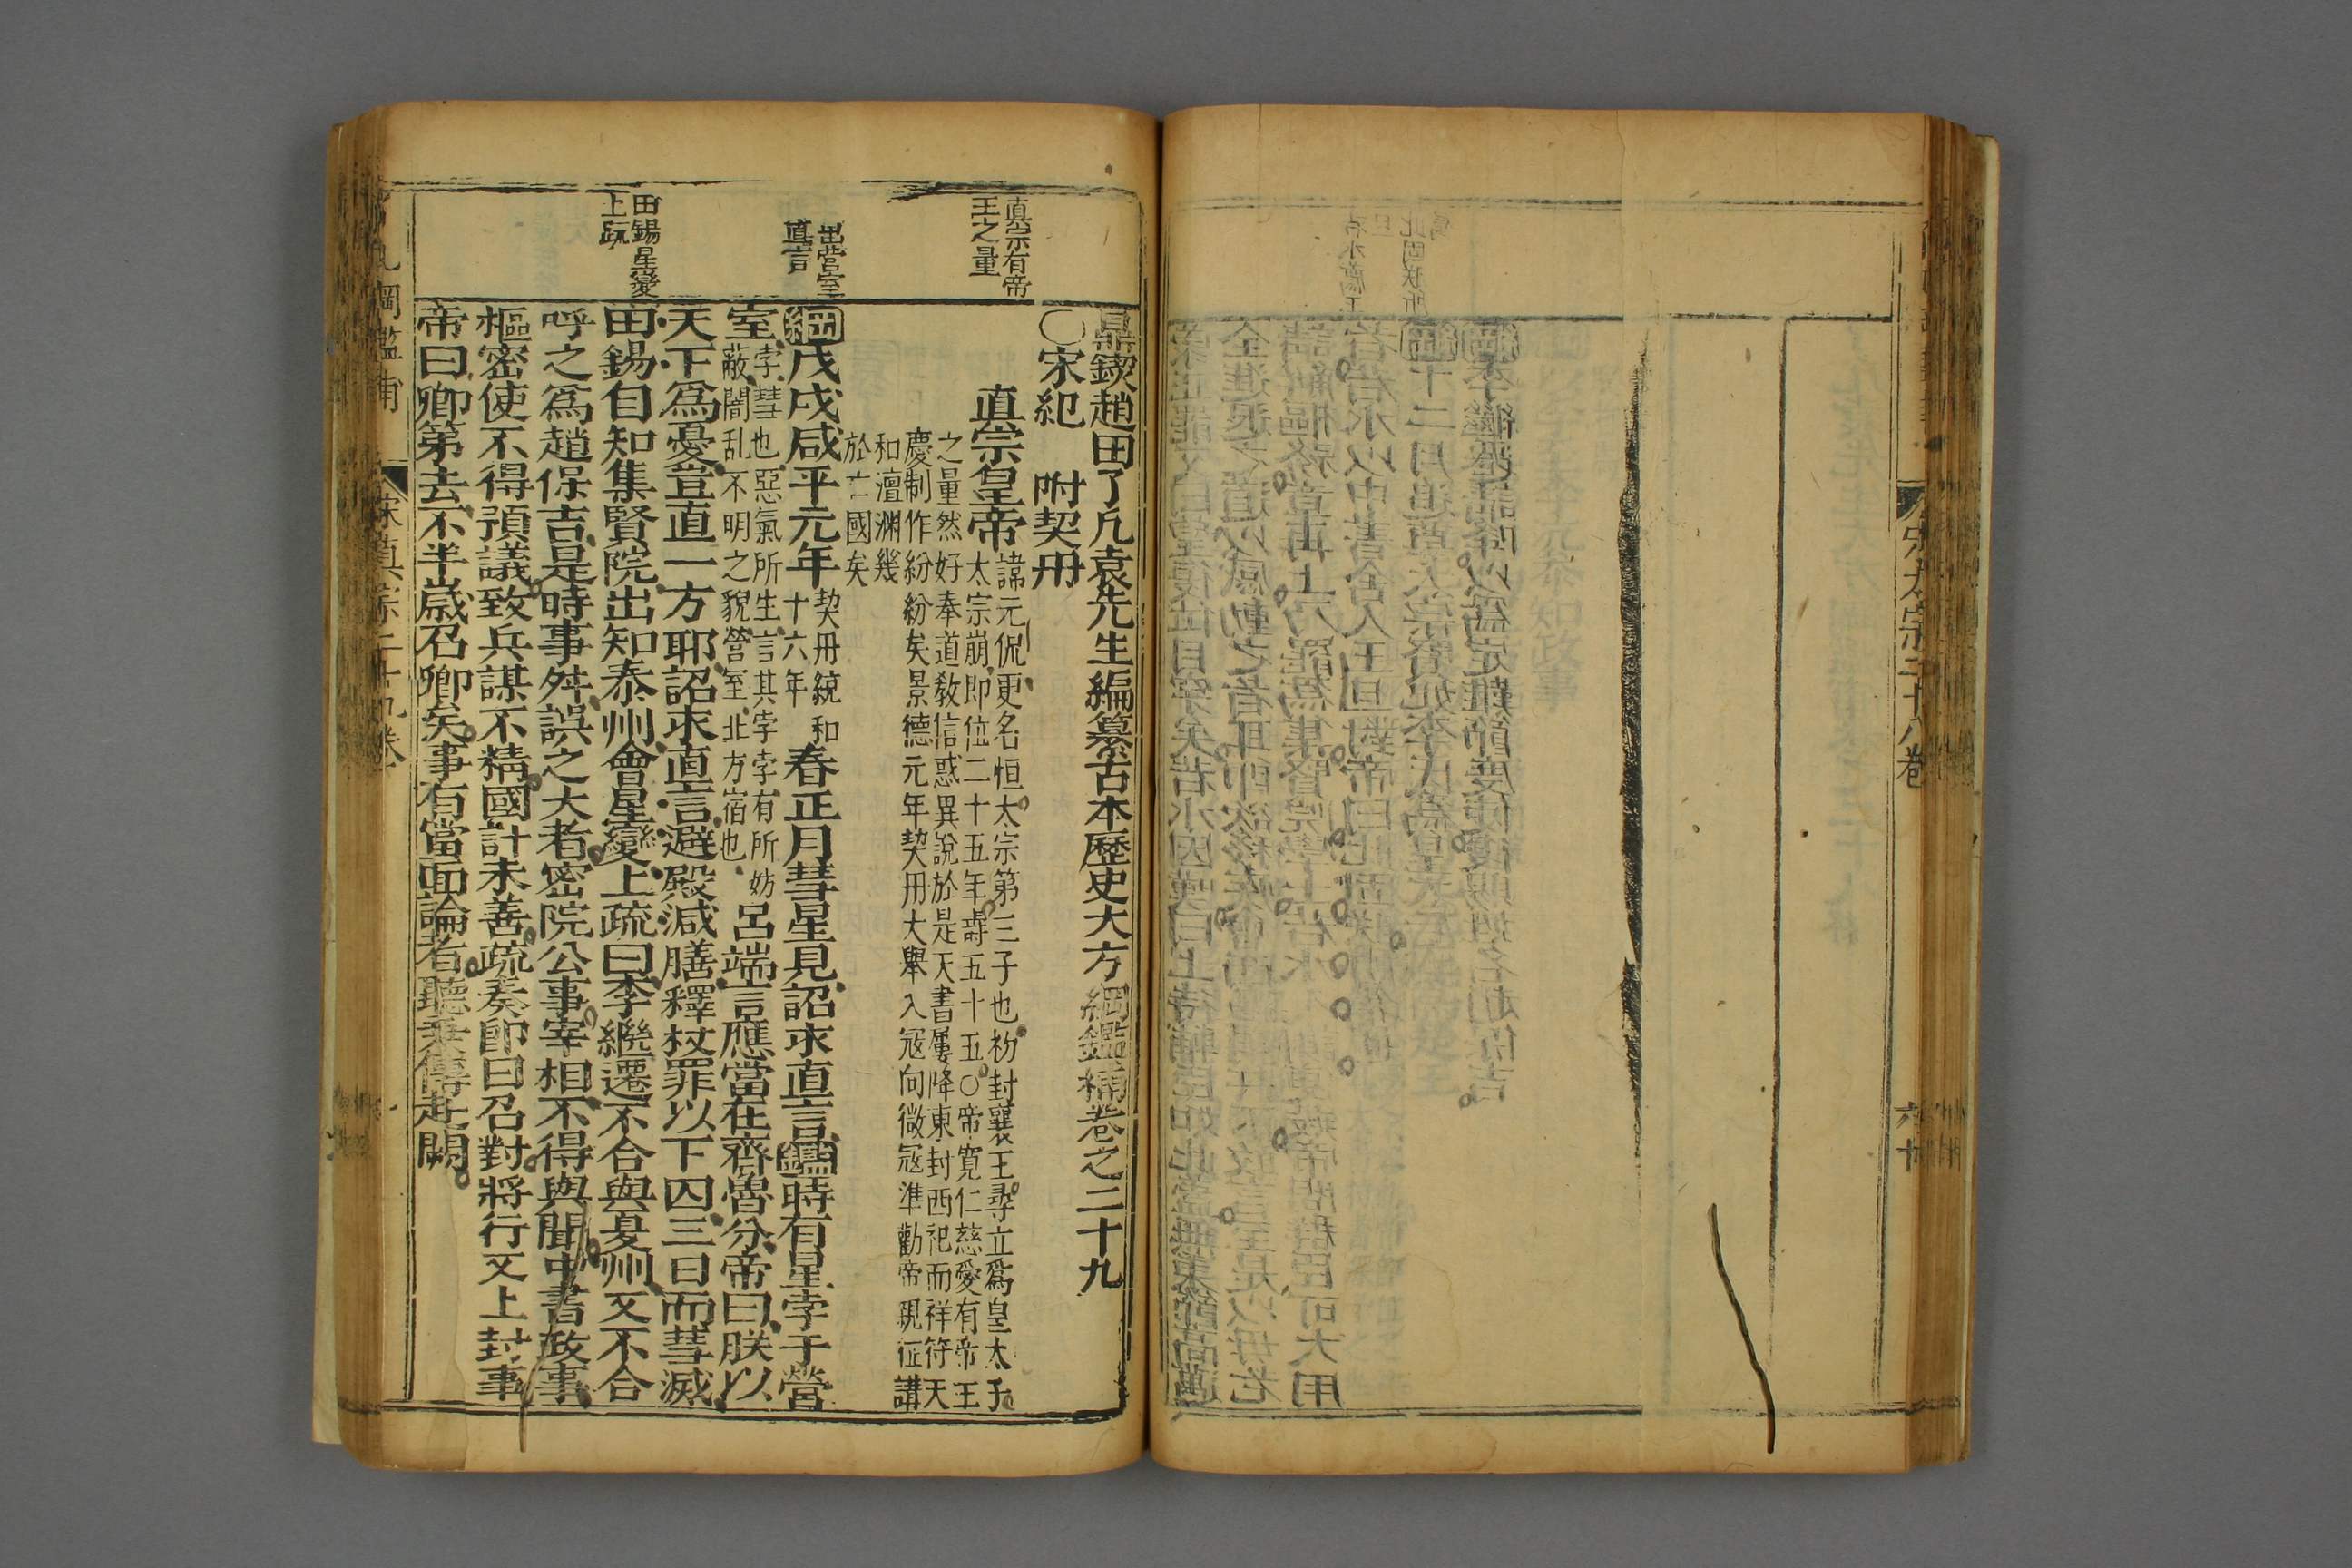 宋太宗二十八卷
六十
鼎鍥趙田了凡袁先生編纂古本歷史大方綱鑑補卷之二十九
○宋紀　附契丹
真宗皇帝
諱元侃更名恒太宗第三子也初封襄王尋立爲皇太子
太宗崩即位二十五年壽五十五○帝寬仁慈愛有帝王
之量然好奉道教信惑異說於是天書屢降東封西祀而祥符天
慶制作紛紛矣景德元年契丹大舉入冦向微冦準勸帝親征講
和澶渊幾
於亡國矣
綱戊戌咸平元年
契丹統和
十六年
春正月彗星見詔求直言鑑時有星孛于營
室
孛彗也惡氣所生言其孛孛有所妨
蔽闇乱不明之貌營室北方宿也
呂端言應當在齊魯分帝曰朕以
天下爲憂豈直一方耶詔求直言避殿減膳釋杖罪以下囚三日而彗滅
田錫自知集賢院出知泰州會星變上疏曰李繼遷不合與夏州又不合
呼之爲趙保吉是時事舛誤之大者密院公事宰相不得與聞中書政事
樞密使不得預議致兵謀不精國計未善疏奏即日召對將行又上封事
帝曰卿第去不半歲召卿矣事有當面論者聽乘傳赴闕
真宗有帝
王之量
出營室
直言
田錫星變
上疏
綱鑑補
宋真宗二十九卷